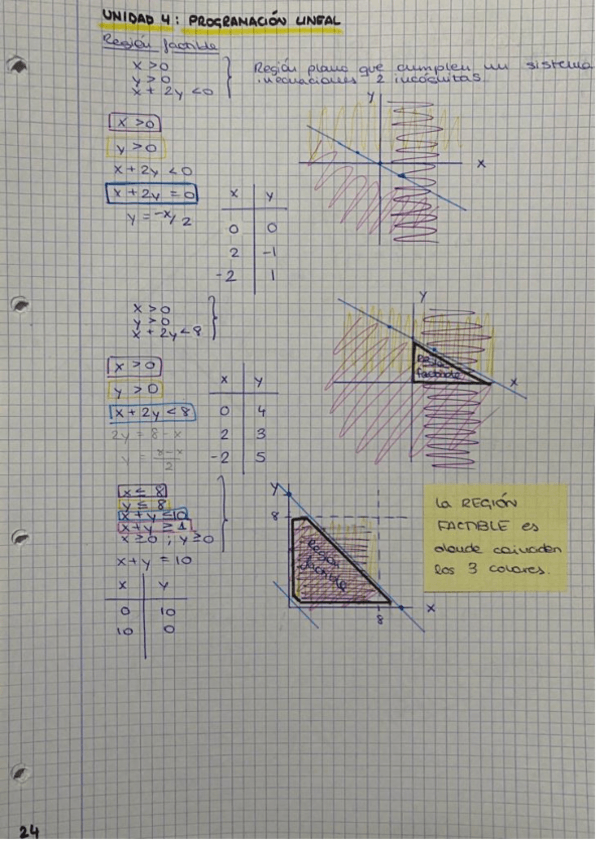 UNIDAD 4: PROGRAMACIÓN LINEAL
Región factible
x > 0
y > 0
x + 2y < 0
Región plano que cumplen un sistema
inecuaciones 2 incógnitas.
x > 0
y > 0
x + 2y < 0
x + 2y = 0
y = -x/2
x y
0 0
2 -1
-2 1
y
x
x > 0
y > 0
x + 2y < 8
x > 0
y > 0
x + 2y < 8
2y = 8 - x
y = 8-x/2
x y
0 4
2 3
-2 5
y
Región
factible
x
x ≤ 8
y ≤ 8
x + y ≤ 10
x + y ≥ 1
x ≥ 0 ; y ≥ 0
x + y = 10
x y
0 10
10 0
y
8
Región
factible
8
x
La REGIÓN
FACTIBLE es
donde coinciden
los 3 colores.
24